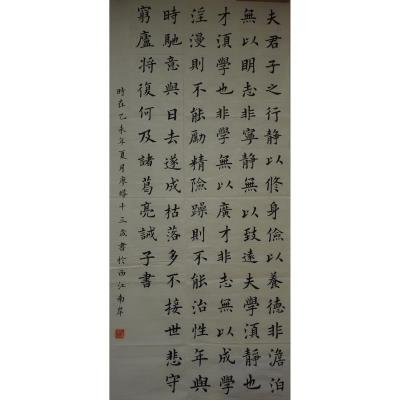 夫君子之行静以修身儉以養德非澹泊
無以明志非寧静無以致遠夫學須静也
才須學也非學無以廣才非志無以成學
淫漫則不能勵精險躁則不能治性年與
時馳意與日去遂成枯落多不接世悲守
窮廬將復何及諸葛亮誡子書
時在乙未年夏月廖十三歲書於西江南岸